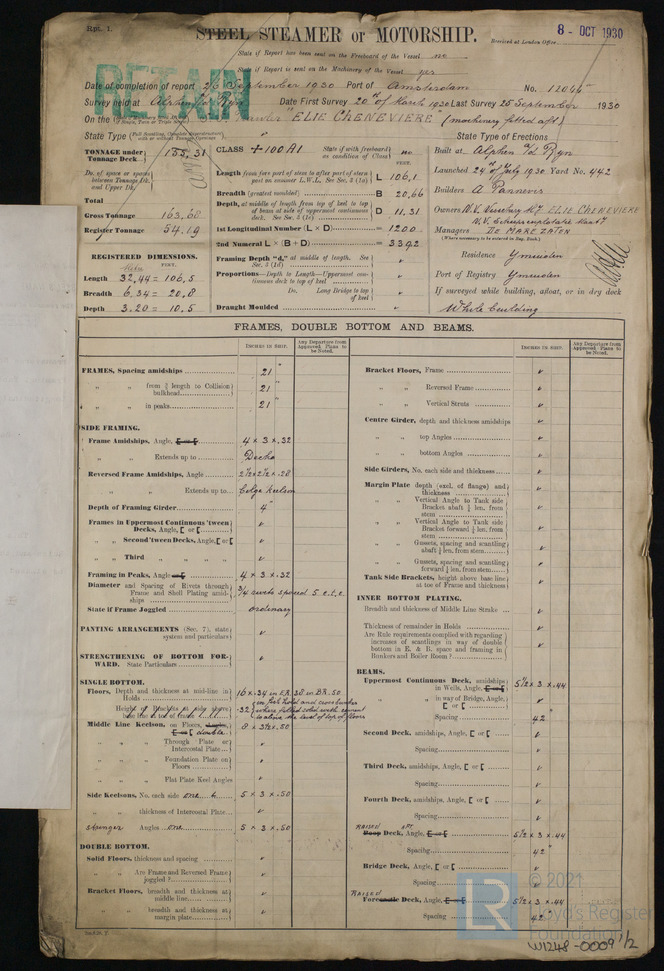 Rpt. 1.
STEEL STEAMER or MOTORSHIP.
8 - OCT 1930
Received at London Office
State if Report has been sent on the Freeboard of the Vessel no
State if Report is sent on the Machinery of the Vessel yes
RETAIN
Date of completion of report 26 September 1930 Port of Amsterdam No. 12045
Survey held at Alphen a/d Ryn Date First Survey 20th of March 1930 Last Survey 25 September 1930
On the "ELIE CHENEVIERE" (machinery fitted aft)
State Type State Type of Erections
TONNAGE under Tonnage Deck 155,31
Do. of space or spaces between Tonnage Dk. and Upper Dk.
Total
Gross Tonnage 163,68
Register Tonnage 54,19
REGISTERED DIMENSIONS.
FEET.
Length 32,44 = 106,5
Breadth 6,34 = 20,8
Depth 3.20 = 10,5
CLASS +100A1 State if with freeboard as condition of Class no
FEET.
Length from fore part of stem to after part of stern post on summer L.W.L. See Sec. 3 (1a) L 106,1
Breadth (greatest moulded) B 20,66
Depth, at middle of length from top of keel to top of beam at side of uppermost continuous deck. See Sec. 3 (1c) D 11.31
1st Longitudinal Number (L × D) = 1200
2nd Numeral L × (B + D) = 3392
Framing Depth "d," at middle of length. See Sec. 3 (1d)
Proportions—Depth to Length—Uppermost continuous deck to top of keel
Do. Long Bridge to top of keel
Draught Moulded
Built at Alphen a/d Ryn
Launched 24th of July 1930 Yard No. 442
Builders A Pannevis
Owners ELIE CHENEVIERE
Managers DE MAREZATEN
(Where necessary to be entered in Reg. Book.)
Residence Ymuiden
Port of Registry Ymuiden
If surveyed while building, afloat, or in dry dock
While building
FRAMES, DOUBLE BOTTOM AND BEAMS.
INCHES IN SHIP.
Any Departure from Approved Plans to be Noted.
INCHES IN SHIP.
Any Departure from Approved Plans to be Noted.
FRAMES, Spacing amidships 21"
" " from ⅗ length to Collision bulkhead 21"
" " in peaks 21"
SIDE FRAMING.
Frame Amidships, Angle, 4 × 3 × .32
" " Extends up to Decks
Reversed Frame Amidships, Angle 2½ × 2½ × .28
" " Extends up to bilge keelson
Depth of Framing Girder 4"
Frames in Uppermost Continuous 'tween Decks, Angle, [ or [
" " Second 'tween Decks, Angle, [ or [
" " Third " " " "
Framing in Peaks, Angle 4 × 3 × .32
Diameter and Spacing of Rivets through Frame and Shell Plating amidships 3/4 rivets spaced 5 c.t.c.
State if Frame Joggled ordinary
PANTING ARRANGEMENTS (Sec. 7), state system and particulars
STRENGTHENING OF BOTTOM FORWARD. State Particulars
SINGLE BOTTOM.
Floors, Depth and thickness at mid-line in Holds 16 × .34 in E.R. .38 in B.R. .50
.32 in fish hold and cross bunker where filled solid with cement to above the level of top of floors
Middle Line Keelson, on Floors, double 8 × 3½ × .50
" " Through Plate or Intercostal Plate
" " Foundation Plate on Floors
" " Flat Plate Keel Angles
Side Keelsons, No. each side one 5 × 3 × .50
" " thickness of Intercostal Plate
stringer Angles one 5 × 3 × .50
DOUBLE BOTTOM.
Solid Floors, thickness and spacing
" " Are Frame and Reversed Frame joggled?
Bracket Floors, breadth and thickness at middle line
" " breadth and thickness at margin plate
Bracket Floors, Frame
" " Reversed Frame
" " Vertical Struts
Centre Girder, depth and thickness amidships
" " top Angles
" " bottom Angles
Side Girders, No. each side and thickness
Margin Plate depth (excl. of flange) and thickness
" " Vertical Angle to Tank side Bracket abaft ¼ len. from stem
" " Vertical Angle to Tank side Bracket forward ¼ len. from stem
" " Gussets, spacing and scantling abaft ¼ len. from stem
" " Gussets, spacing and scantling forward ¼ len. from stem
Tank Side Brackets, height above base line at toe of Frame and thickness
INNER BOTTOM PLATING.
Breadth and thickness of Middle Line Strake
Thickness of remainder in Holds
Are Rule requirements complied with regarding increases of scantlings in way of double bottom in E. & B. space and framing in Bunkers and Boiler Room?
BEAMS.
Uppermost Continuous Deck, amidships in Wells, Angle, 5½ × 3 × .44
" " in way of Bridge, Angle, [ or [
Spacing 42"
Second Deck, amidships, Angle, [ or [
Spacing
Third Deck, amidships, Angle, [ or [
Spacing
Fourth Deck, amidships, Angle, [ or [
Spacing
RAISED AFT Poop Deck, Angle, 5½ × 3 × .44
Spacing 42"
Bridge Deck, Angle, [ or [
Spacing
RAISED Forecastle Deck, Angle, 5½ × 3 × .44
Spacing 42"
© 2021
LR
Lloyd's Register
Foundation
W1248-0009 1/2